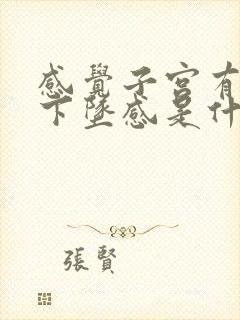 感覺子宮有
下墜感是什
張賢